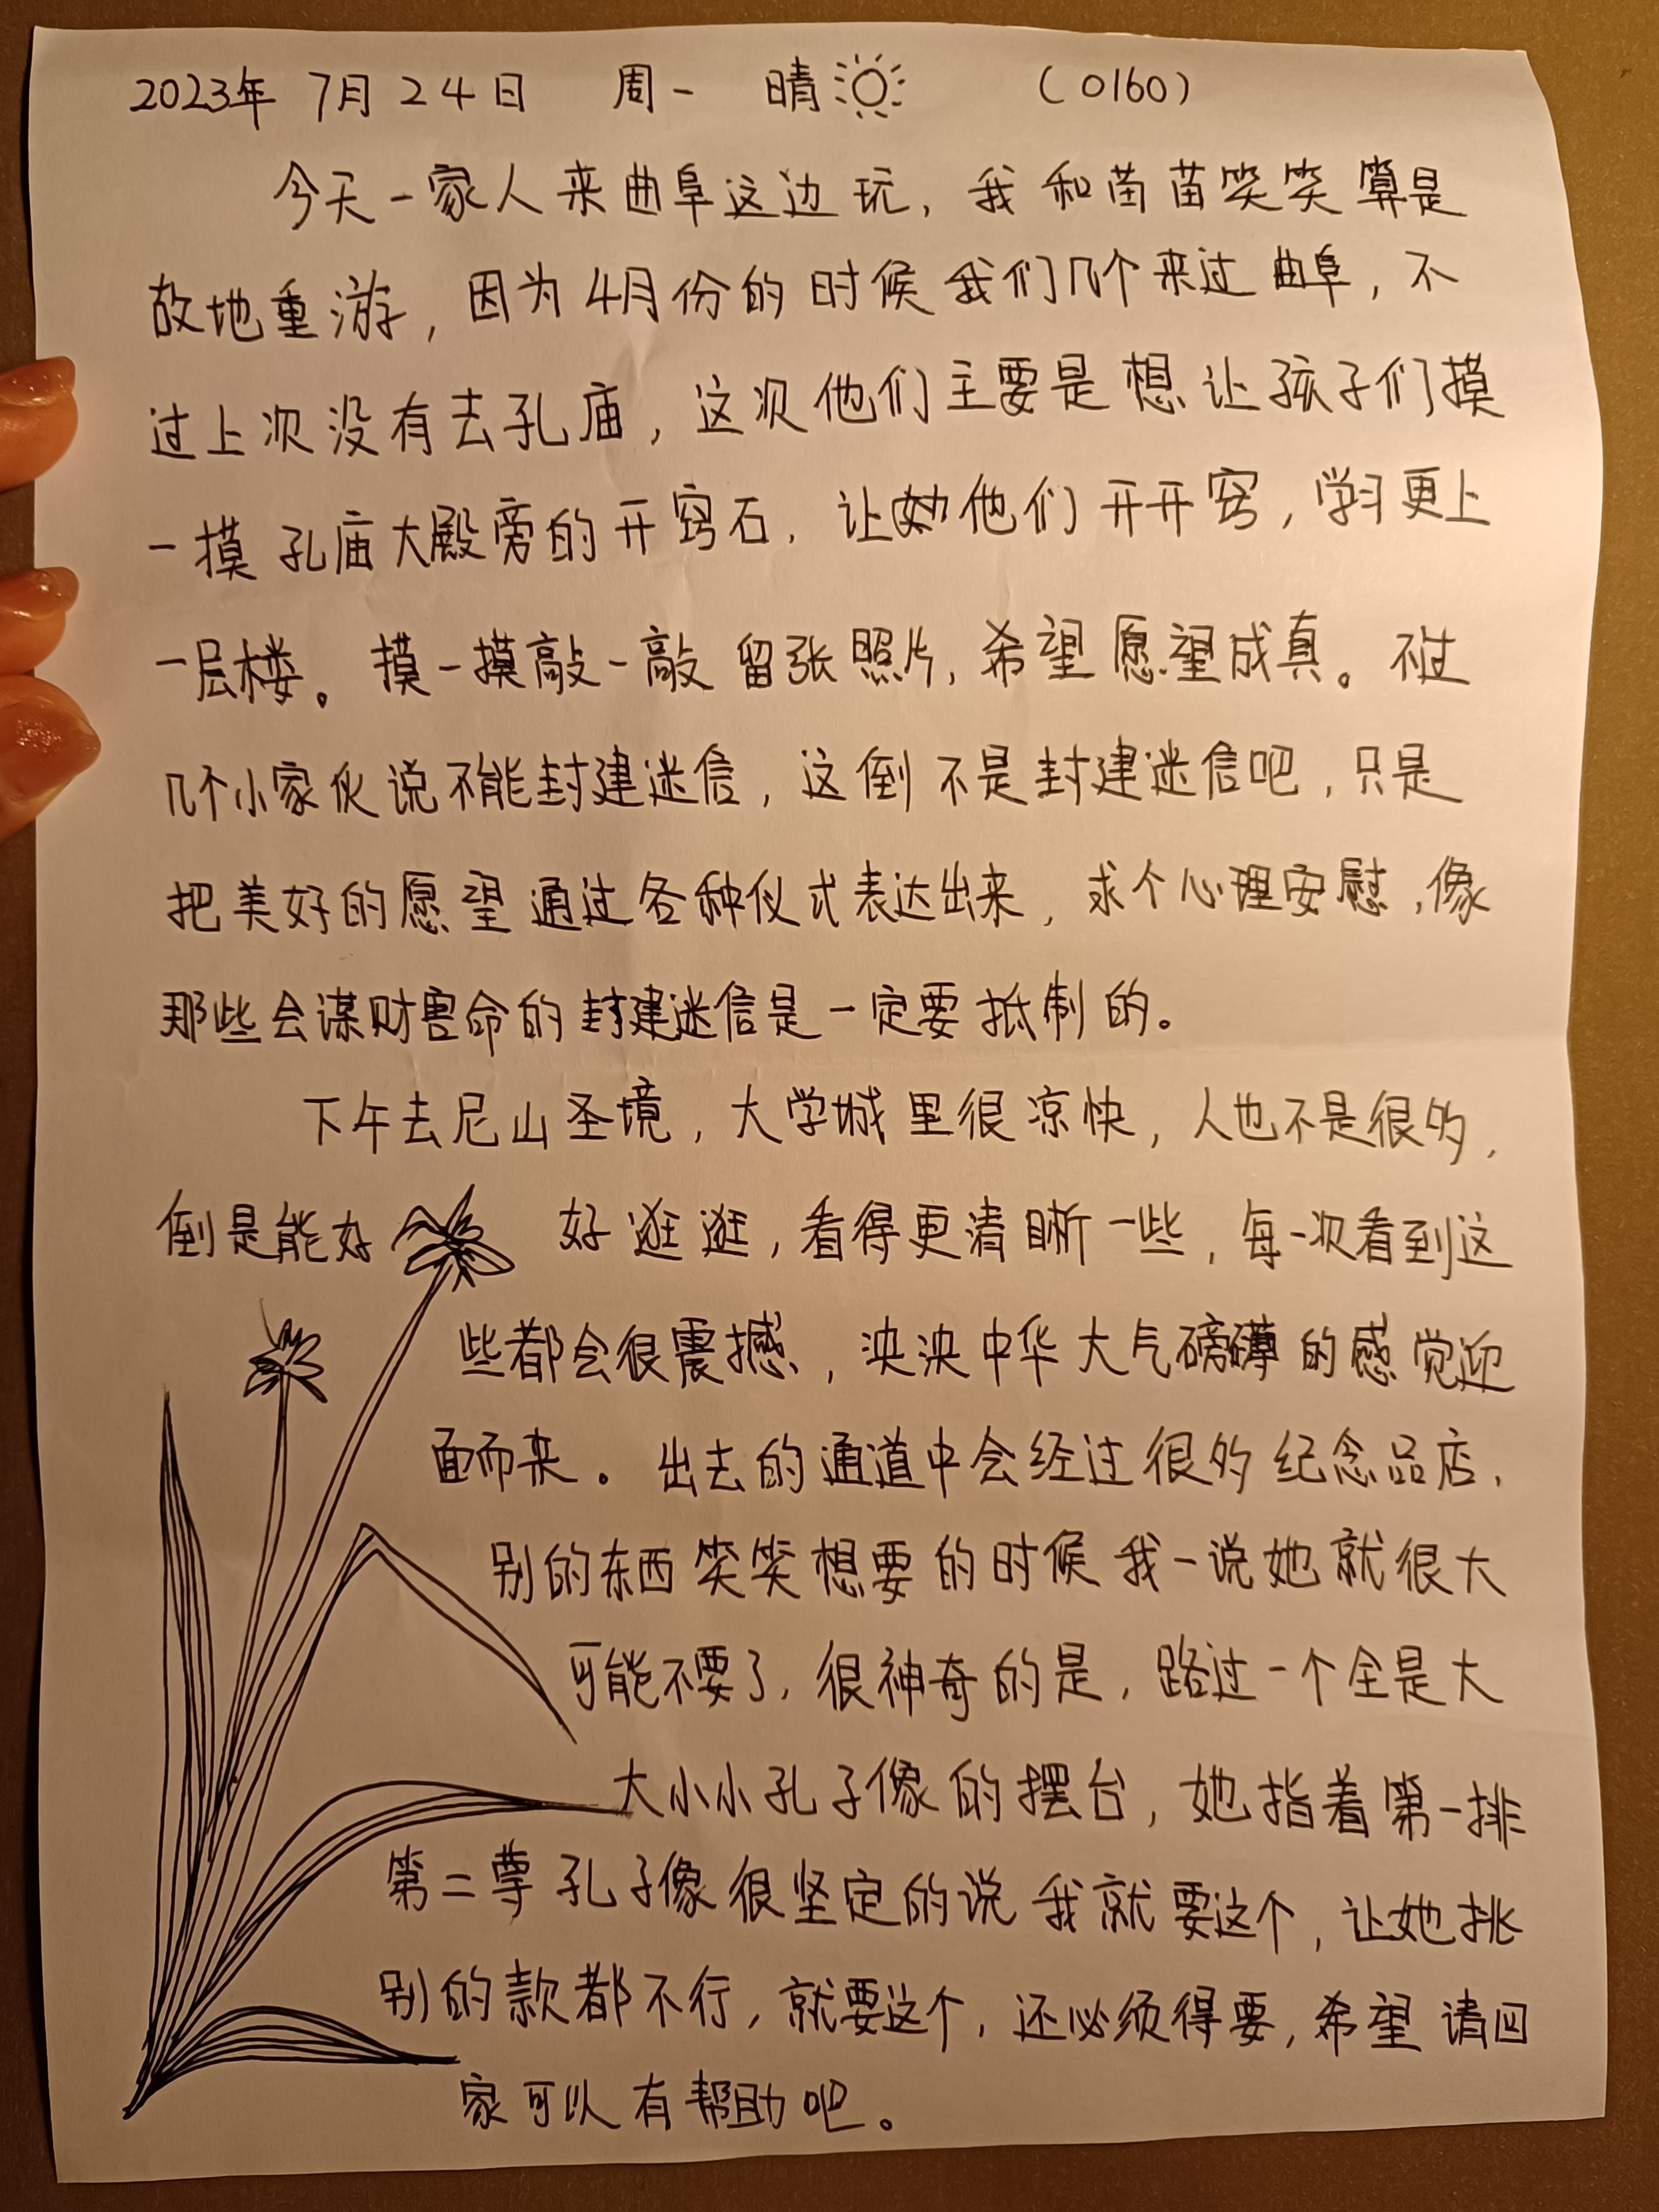 2023年 7月24日 周一 晴 (0160)
今天一家人来曲阜这边玩，我和苗苗笑笑算是
故地重游，因为4月份的时候我们几个来过曲阜，不
过上次没有去孔庙，这次他们主要是想让孩子们摸
一摸孔庙大殿旁的开窍石，让他们开开窍，学习更上
一层楼。摸一摸敲一敲留张照片，希望愿望成真。不过
几个小家伙说不能封建迷信，这倒不是封建迷信吧，只是
把美好的愿望通过各种仪式表达出来，求个心理安慰，像
那些会谋财害命的封建迷信是一定要抵制的。
下午去尼山圣境，大学城里很凉快，人也不是很多，
倒是能好好逛逛，看得更清晰一些，每一次看到这
些都会很震撼，泱泱中华大气磅礴的感觉迎
面而来。出去的通道中会经过很多纪念品店，
别的东西笑笑想要的时候我一说她就很大
可能不要了，很神奇的是，路过一个全是大
大小小孔子像的摆台，她指着第一排
第二尊孔子像很坚定的说我就要这个，让她挑
别的款都不行，就要这个，还必须得要，希望请回
家可以有帮助吧。